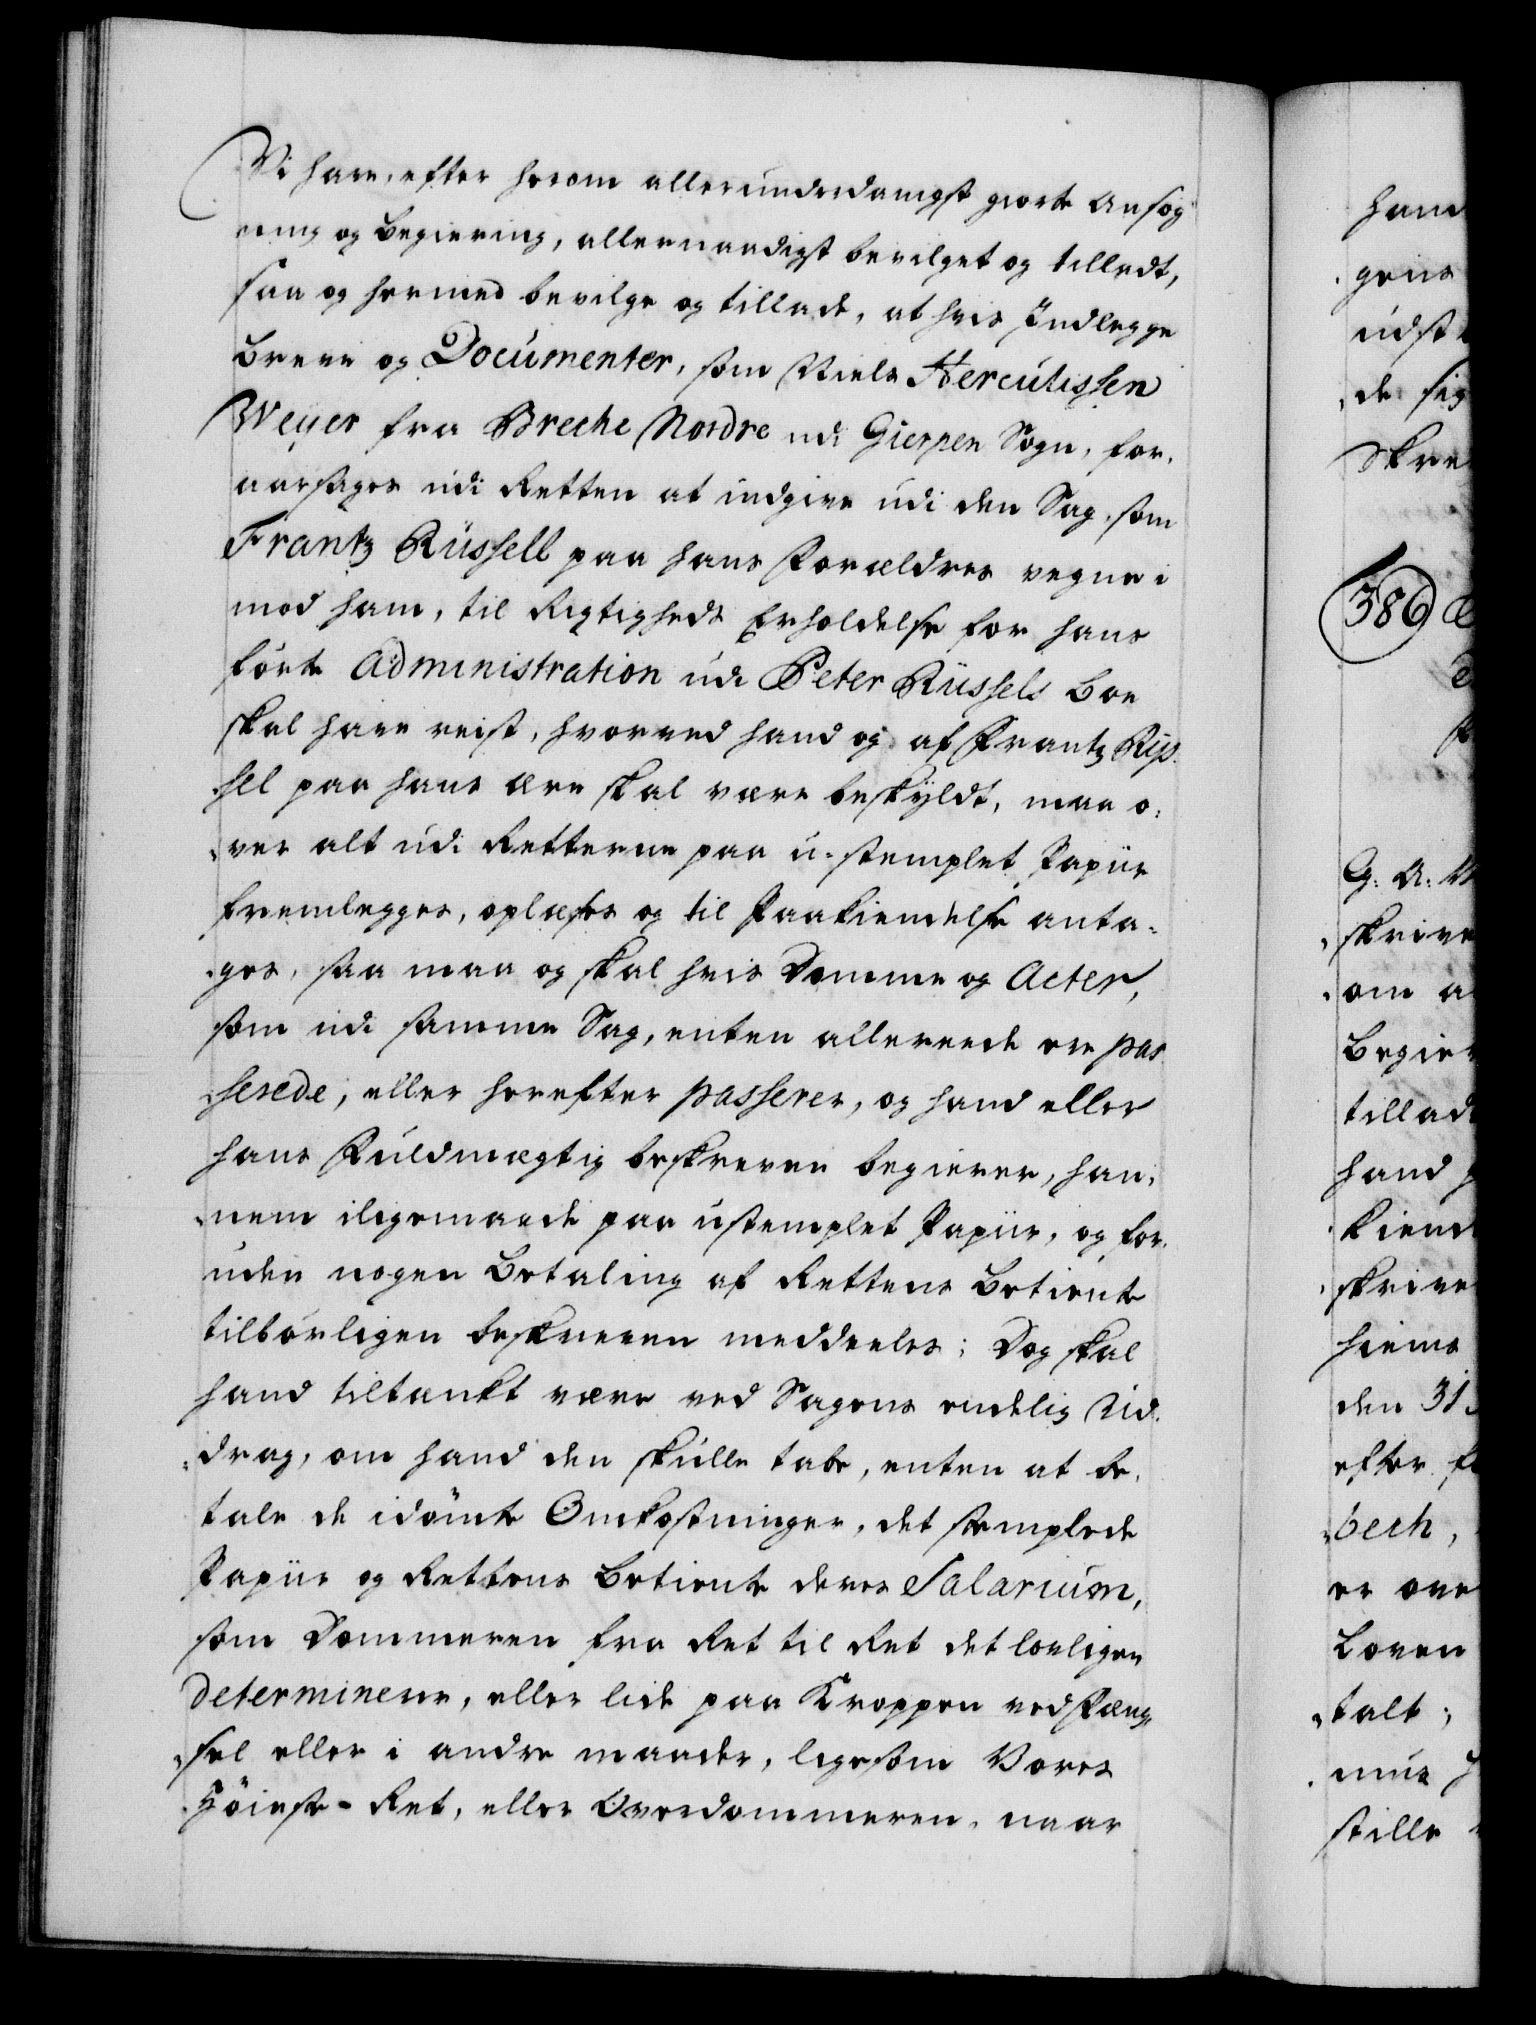 Vi have, efter herom allerunderdanigst giorte Ansøg
ning og Begiering, allernaadigst bevilget og tilladt,
saa og hermed bevilge og tillade, at hvis Indlegge
Breve og Documenter, som Niels Herculissen
Weyer fra Breche Nordre udi Gierpen Sogn, for¬
aarsages udi Retten at indgive udi den Sag, som
Frantz Rüssell paa hans Forældres vegne i
mod ham, til Rigtigheds Erholdelse for hans
førte Administration udi Peter Rüssels Boe
skal have reist, hvorved hand og af Frantz Rüs¬
sel paa hans Ære skal være beskyldt, maa o¬
ver alt udi Retterne paa u-stemplet Papiir
fremlegges, oplæses og til Paakiendelse anta¬
ges, saa maa og skal hvis Domme og Acter,
som udi samme Sag, enten allereede ere pas
serede, eller herefter passerer, og hand eller
hans Fuldmægtig beskreven begierer, han¬
nem ligemaade paa ustemplet Papiir, og for¬
uden nogen Betaling af Rettens Betiente
tilbørligen beskreven meddeeles; Dog skal
hand tiltænkt være ved Sagens endelig Ud¬
drag, om hand den skulle tabe, enten at be¬
tale de idømte Omkostninger, det stemplede
Papiir og Rettens Betiente deres Salarium,
som Dommeren fra Ret til Ret det lovligen
determinerer, eller lide paa Kroppen ved Fæng¬
sel eller i andre maader, ligesom Vores
Høieste-Ret, eller Overdommeren, naar
hand
gens
udst
de sig
Skre
386
G: A: W
skrive
om a
Begier
tillad
hand
kiend
skrive
hiems
den 31
efter
bech,
er ove
Loven
talt;
mue
stille